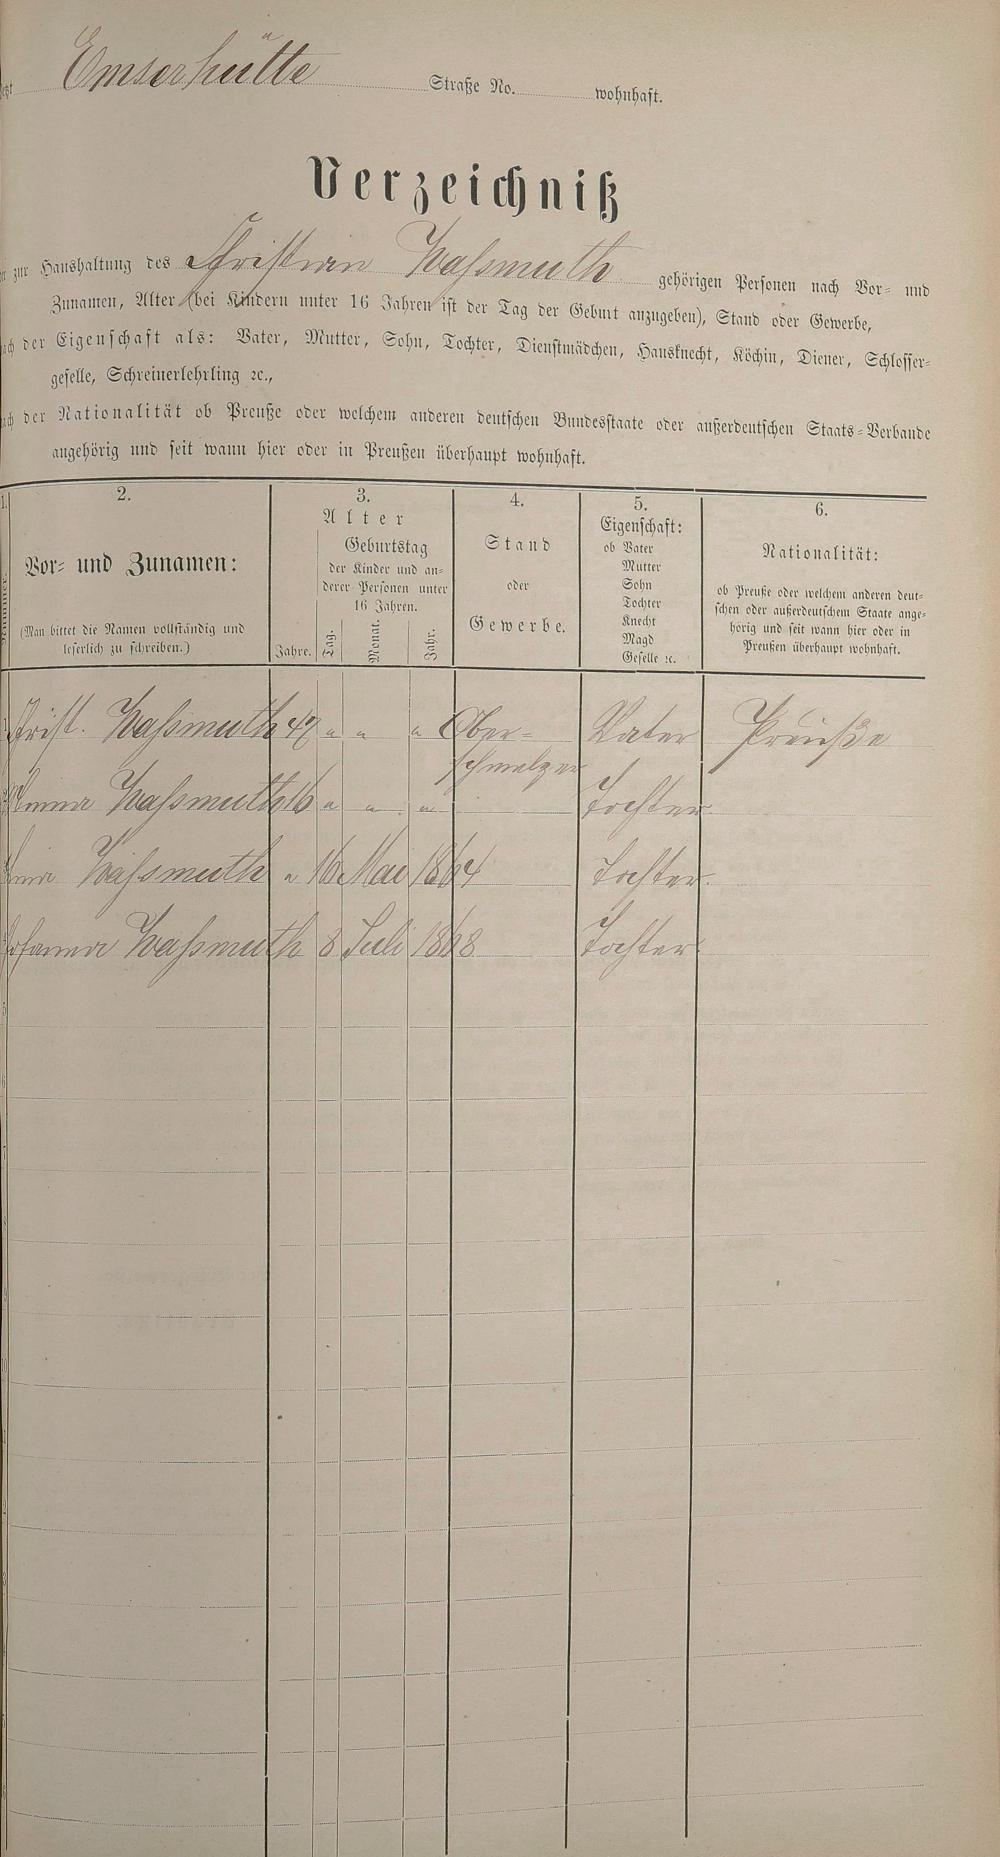 Emserhütte Straße No. wohnhaft.
Verzeichniß
zur Haushaltung des Christian Waßmuth gehörigen Personen nach Vor- und
Zunamen, Alter (bei Kindern unter 16 Jahren ist der Tag der Geburt anzugeben), Stand oder Gewerbe,
der Eigenschaft als: Vater, Mutter, Sohn, Tochter, Dienstmädchen, Hausknecht, Köchin, Diener, Schlosser-
geselle, Schreinerlehrling ꝛc.,
der Nationalität ob Preuße oder welchem anderen deutschen Bundesstaate oder außerdeutschen Staats-Verbande
angehörig und seit wann hier oder in Preußen überhaupt wohnhaft.
1.
Nummer.
2.
Vor- und Zunamen:
(Man bittet die Namen vollständig und
leserlich zu schreiben.)
3.
Alter
Jahre.
Geburtstag
der Kinder und an-
derer Personen unter
16 Jahren.
Tag.
Monat.
Jahr.
4.
Stand
oder
Gewerbe.
5.
Eigenschaft:
ob Vater
Mutter
Sohn
Tochter
Knecht
Magd
Geselle ꝛc.
6.
Nationalität:
ob Preuße oder welchem anderen deut-
schen oder außerdeutschem Staate ange-
hörig und seit wann hier oder in
Preußen überhaupt wohnhaft.
Christ. Waßmuth 47 " " " Ober- Vater Preuße
schmelzer
Waßmuth 16 " " " Tochter
Waßmuth " 16 Mai 1864 Tochter.
Johanna Waßmuth 8 Juli 1868 Tochter.
5
6
7
8
9
10